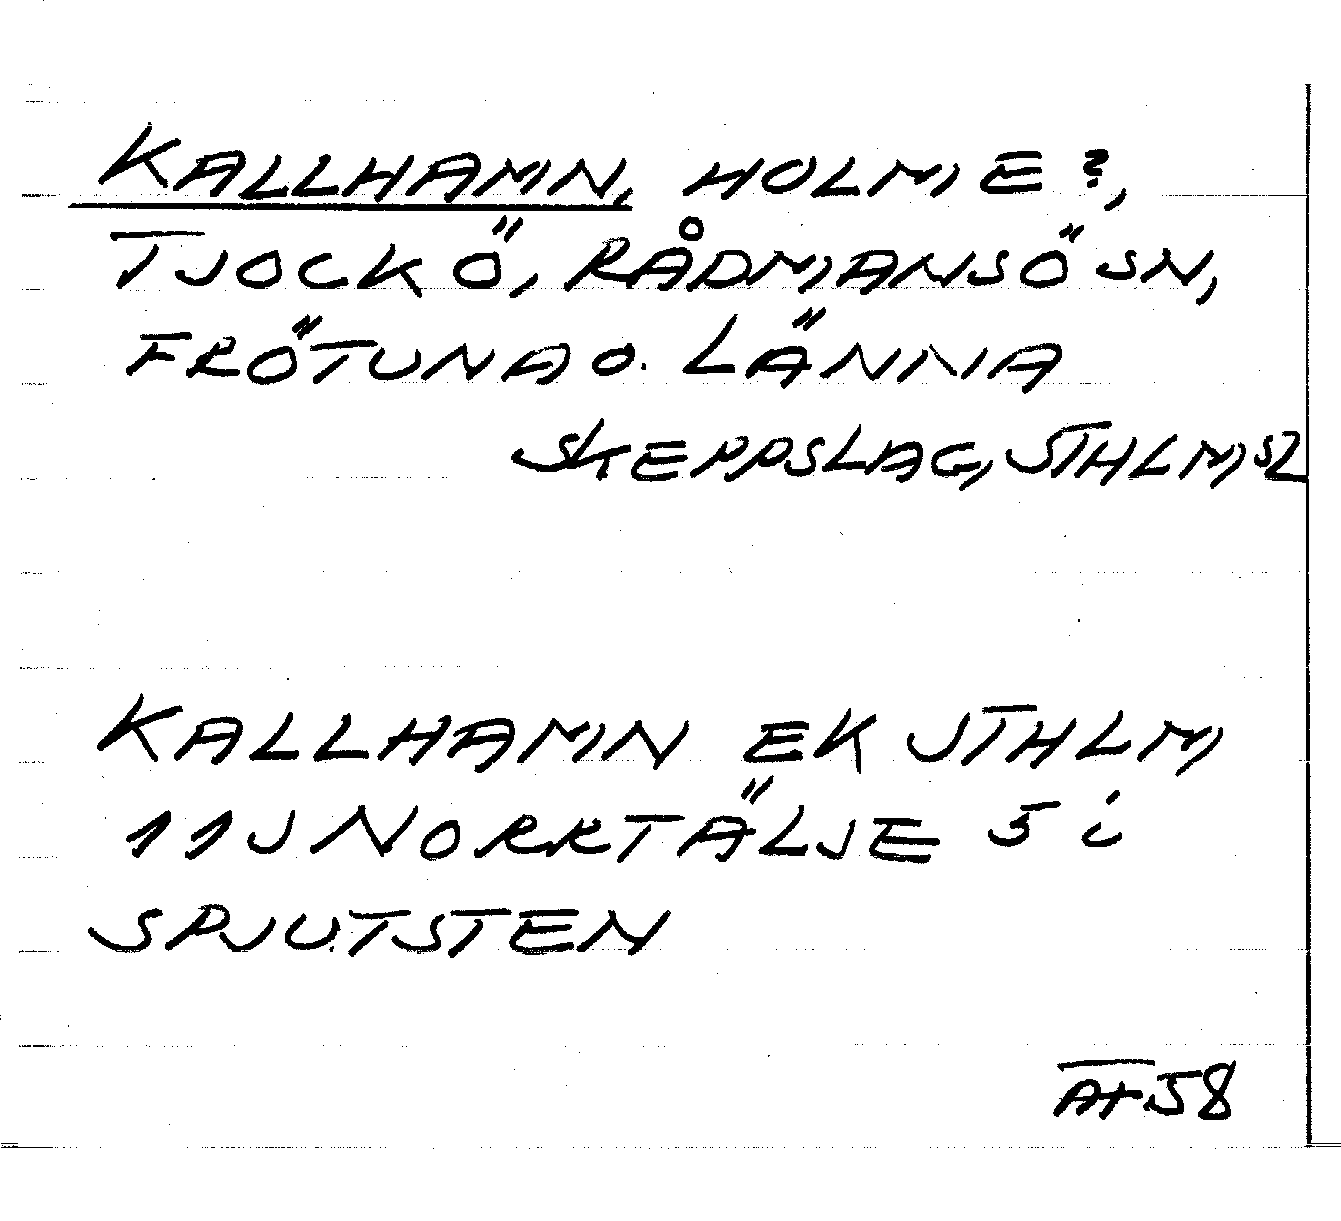 KALLHAMN, HOLME?,
TJOCKÖ, RÅDMANSÖ SN,
FRÖTUNA O. LÄNNA
SKEPPSLAG, STHLM,S2
KALLHAMN EK STHLM
11J NORRTÄLJE 5 i
SPJUTSTEN
58